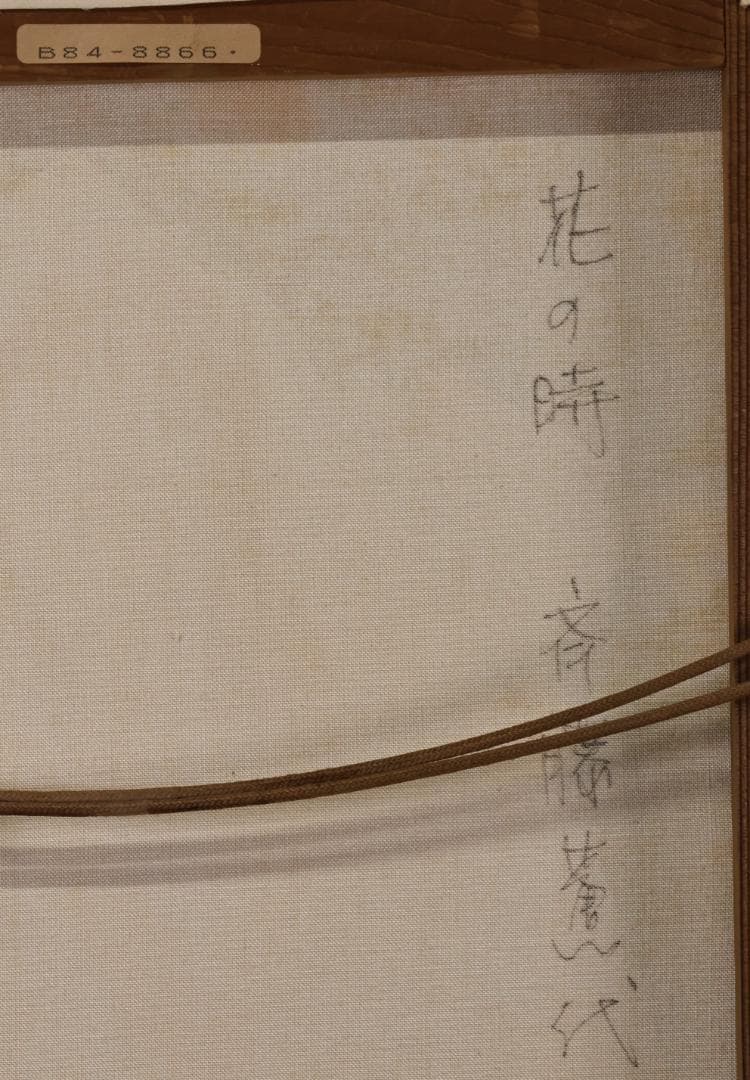 B84-8866.
花の時 斉藤薫代